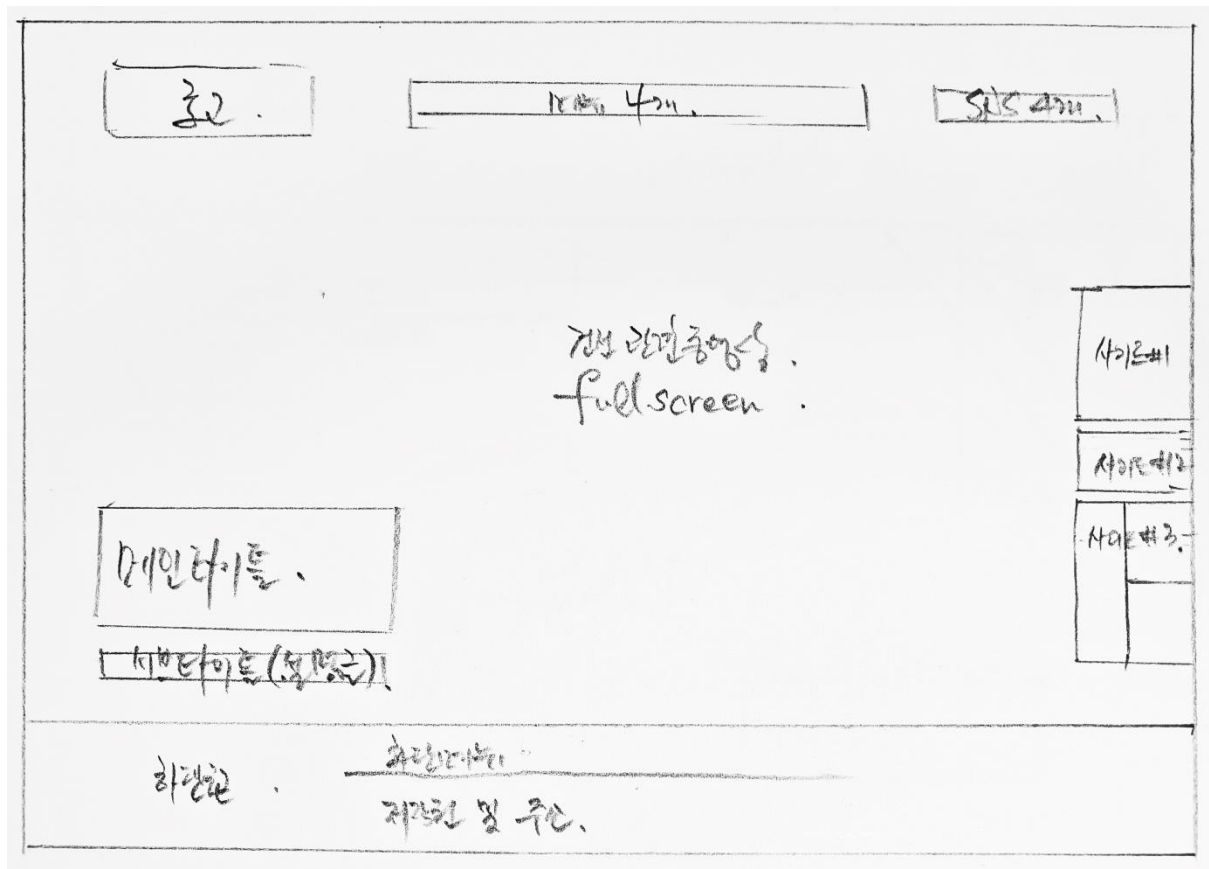 로고.
메뉴 4개.
SNS 4개.
관련동영상.
full screen.
사이트#1
사이트#2
사이트#3.
메인타이틀.
서브타이틀(설명글).
하단로고.
하단메뉴
저작권 및 주소.